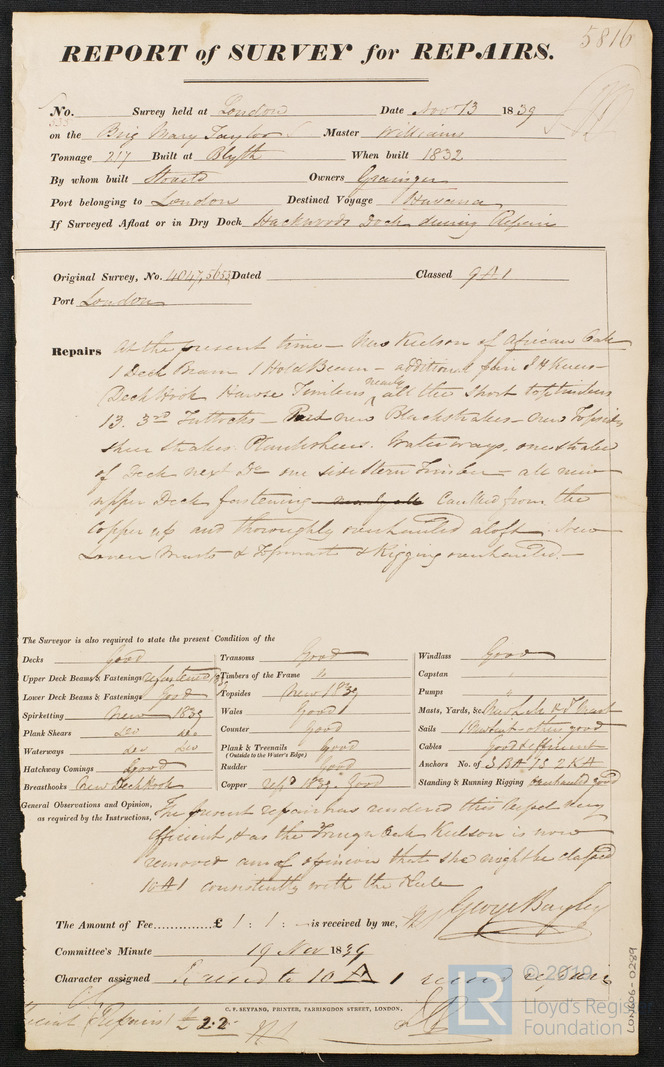 5816
REPORT of SURVEY for REPAIRS.
No. Survey held at London Date Nov 13 1839
on the Brig Mary Taylor Master Williams
Tonnage 217 Built at Blyth When built 1832
By whom built Stoards Owners Grainger
Port belonging to London Destined Voyage Havana
If Surveyed Afloat or in Dry Dock Hackwoods Dock during Repair
Original Survey, No. 4047, 5653 Dated Classed 9 A 1
Port London
Repairs At the present time – New Keelson of African Oak
1 Deck Beam 1 Hold Beam – additional pair I H Knees –
Deck Hook Hawse Timbers nearly all the Short toptimbers
13. 3rd Futtocks – new Blackstrakes – new Topsides
Sheer Strakes. Plankshears. Waterways, one strake
of Deck next Do one side Stern Timber – all new
upper Deck fastening Caulked from the
Copper up and thoroughly overhauled aloft. New
Lower Masts & Topmast & Rigging overhauled. –
The Surveyor is also required to state the present Condition of the
Decks Good
Upper Deck Beams & Fastenings refastened 1839
Lower Deck Beams & Fastenings Good
Spirketting New 1839
Plank Shears Do Do
Waterways Do Do
Hatchway Comings Good
Breasthooks New Deck Hook
Transoms Good
Timbers of the Frame "
Topsides New 1839
Wales Good
Counter Good
Plank & Treenails Good
(Outside to the Water's Edge)
Rudder Good
Copper repd 1839. Good
Windlass Good
Capstan "
Pumps "
Masts, Yards, &c. New L M & T Mast
Sails 1 New Suit – other good
Cables good & efficient
Anchors No. of 3 BA 1 S 2 K A
Standing & Running Rigging Overhauled good
General Observations and Opinion, The present repair has rendered this Vessel very
as required by the Instructions, efficient, & as the Foreign Oak Keelson is now
removed am of opinion that she might be classed
10 A 1 consistently with the Rule
The Amount of Fee............... £ 1 : 1 : – is received by me, George Bayley
Committee's Minute 19 Nov 1839
Character assigned 10 A 1
C. F. SEYFANG, PRINTER, FARRINGDON STREET, LONDON.
(Repairs) £ 2.2
LON606-0289
LR
© 2019
Lloyd's Register
Foundation